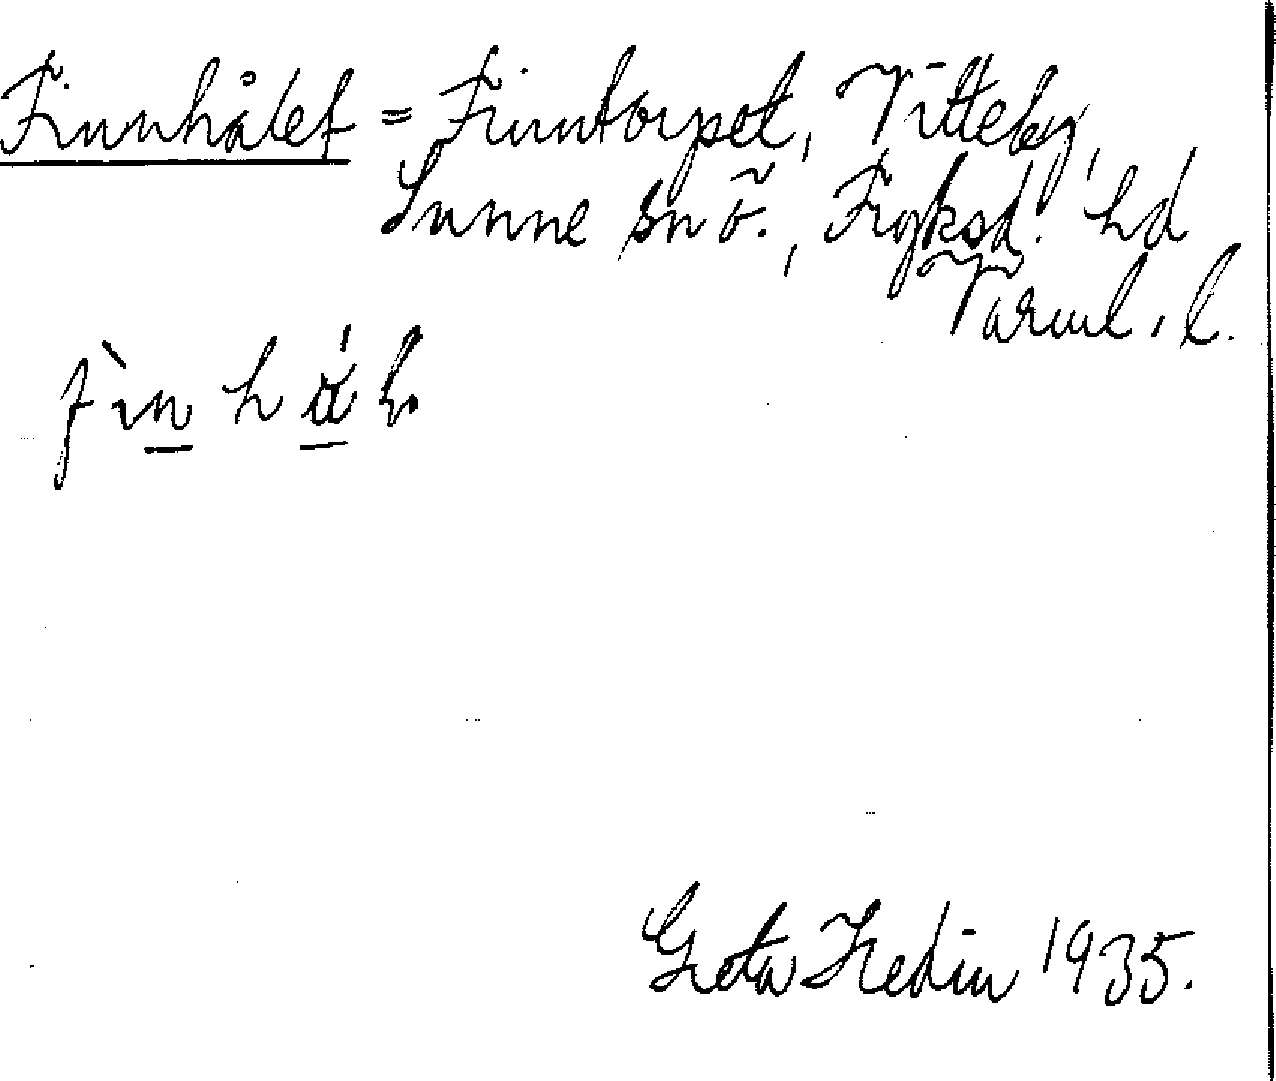 Finnhålet = Finntorpet, Vitteby,
Sunne sn ö., Fryksd. hd
Värml. l.
Greta Hedin 1935.